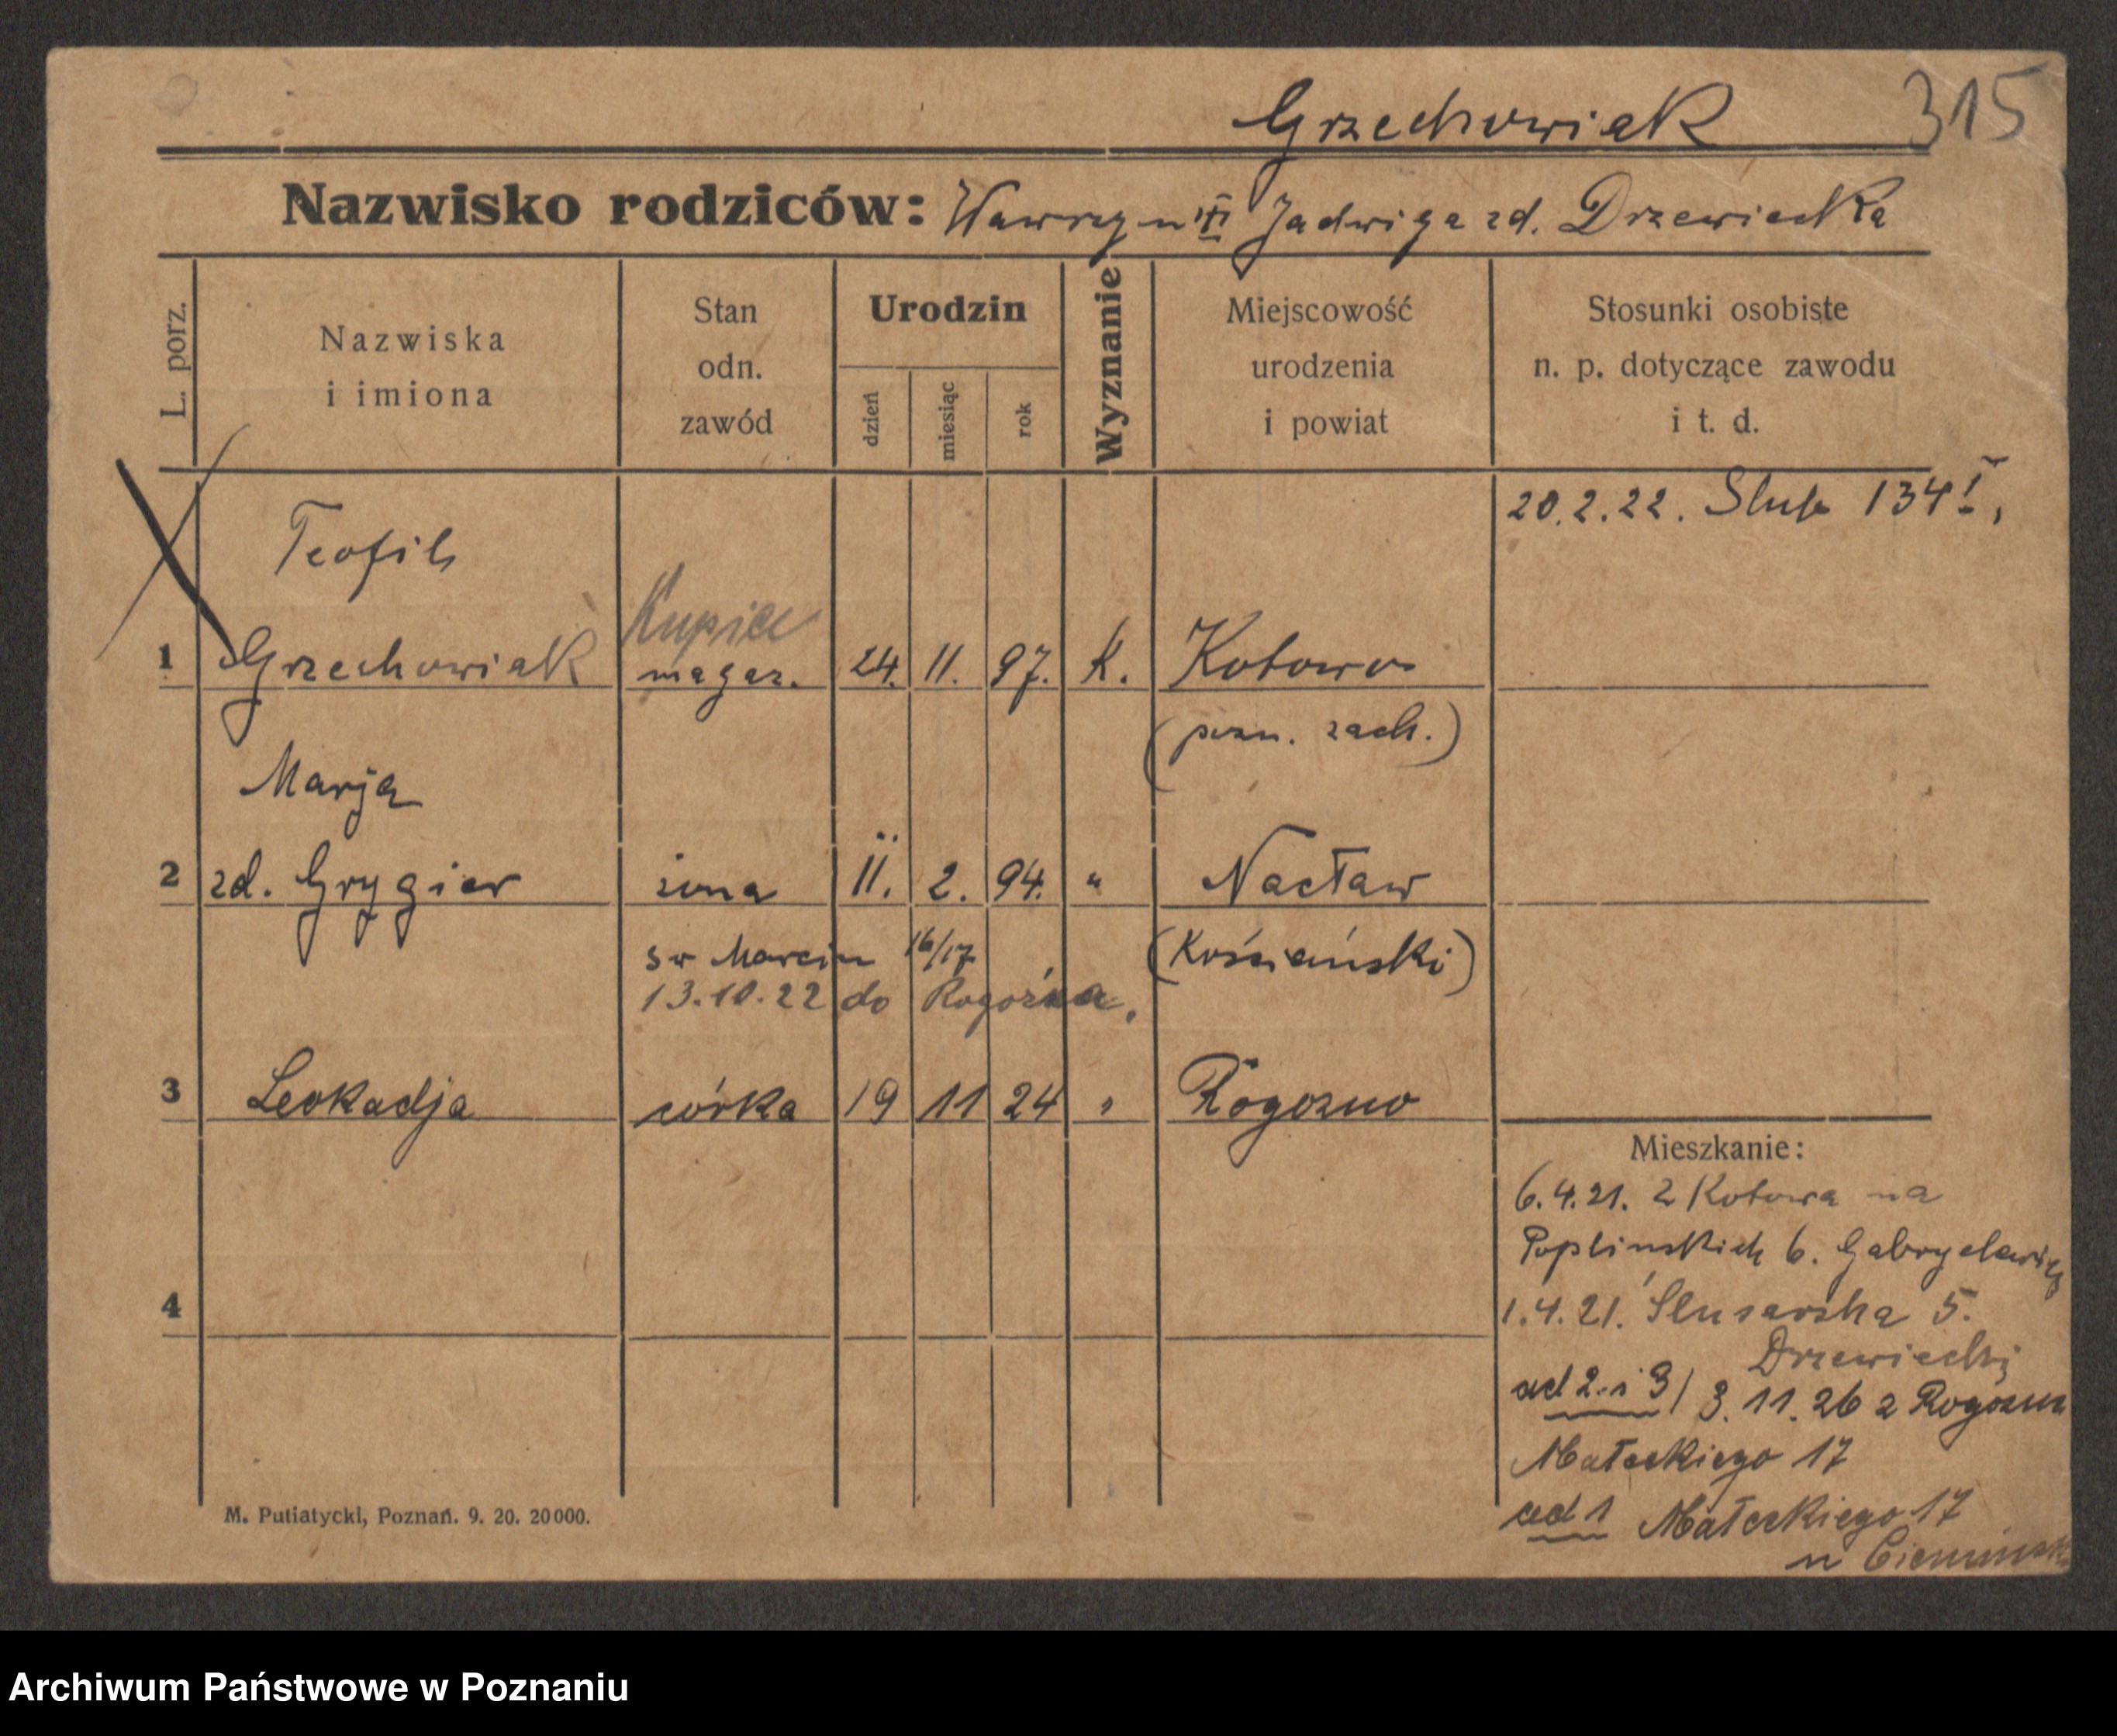 Grzechowiak 315
Nazwisko rodziców: Wawrzyn i Jadwiga zd. Drzewiecka
L. porz.
Nazwiska
i imiona
Stan
odn.
zawód
Urodzin
dzień
miesiąc
rok
Wyznanie
Miejscowość
urodzenia
i powiat
Stosunki osobiste
n. p. dotyczące zawodu
i t. d.
20.2.22. Slub 134 I,
Teofil
Kupiec
1 Grzechowiak magaz. 24. 11. 97. K. Kotowo
(pozn. zach.)
Marja
2 zd. Grygier żona 11. 2. 94. " Nacław
św Marcin 16/17 (Kościański)
13.10.22 do Rogoźna.
3 Leokadja córka 19 11 24 " Rogozno
Mieszkanie:
6.4.21. z Kotowa na
Poplinskich 6. Gabryelewicz
1.4.21. Slusarska 5.
Drzewiecki
ad 2 i 3/ 3.11.26 z Rogozna
Małeckiego 17
ad 1 Małeckiego 17
4
M. Putiatycki, Poznań. 9. 20. 20000.
Archiwum Państwowe w Poznaniu